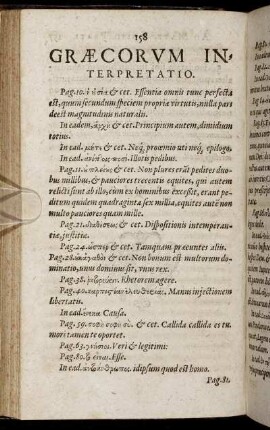 158
GRÆCORVM IN-
TERPRETATIO.
Pag.10. & cet. Essentia omnis tunc perfecta
est, quum secundum speciem propria virtutis, nulla pars
deest magnitudinis naturalis.
In eadem, & cet. Principium autem, dimidium
totius.
In ead. & cet. Neq, proœmio uti neq, epilogo.
In ead. Illotis pedibus.
Pag.11. & cet. Non plures erãt pedites duo-
bus millibus, & pauciores trecentis equites, qui autem
relicti sunt ab illo, cum ex hominibus excessit, erant pe-
ditum quidem quadraginta sex millia, equites autē non
multo pauciores quàm mille.
Pag.21. & cet. Dispositionis intemperan-
tiæ, iustitiæ.
Pag.24. & cet. Tanquam præeuntes aliis.
Pag.28. & cet. Non bonum est multorum do-
minatio, unus dominus sit, unus rex.
Pag.38. Rhetorem agere.
Pag.40. Manus iniectionem
libertatis.
In ead. Causa.
Pag.59. & cet. Callida callida es tu-
mori tamen te oportet.
Pag.63. Veri & legitimi:
Pag.80. Esse.
In ead. idipsum quod est homo.
Pag.81.